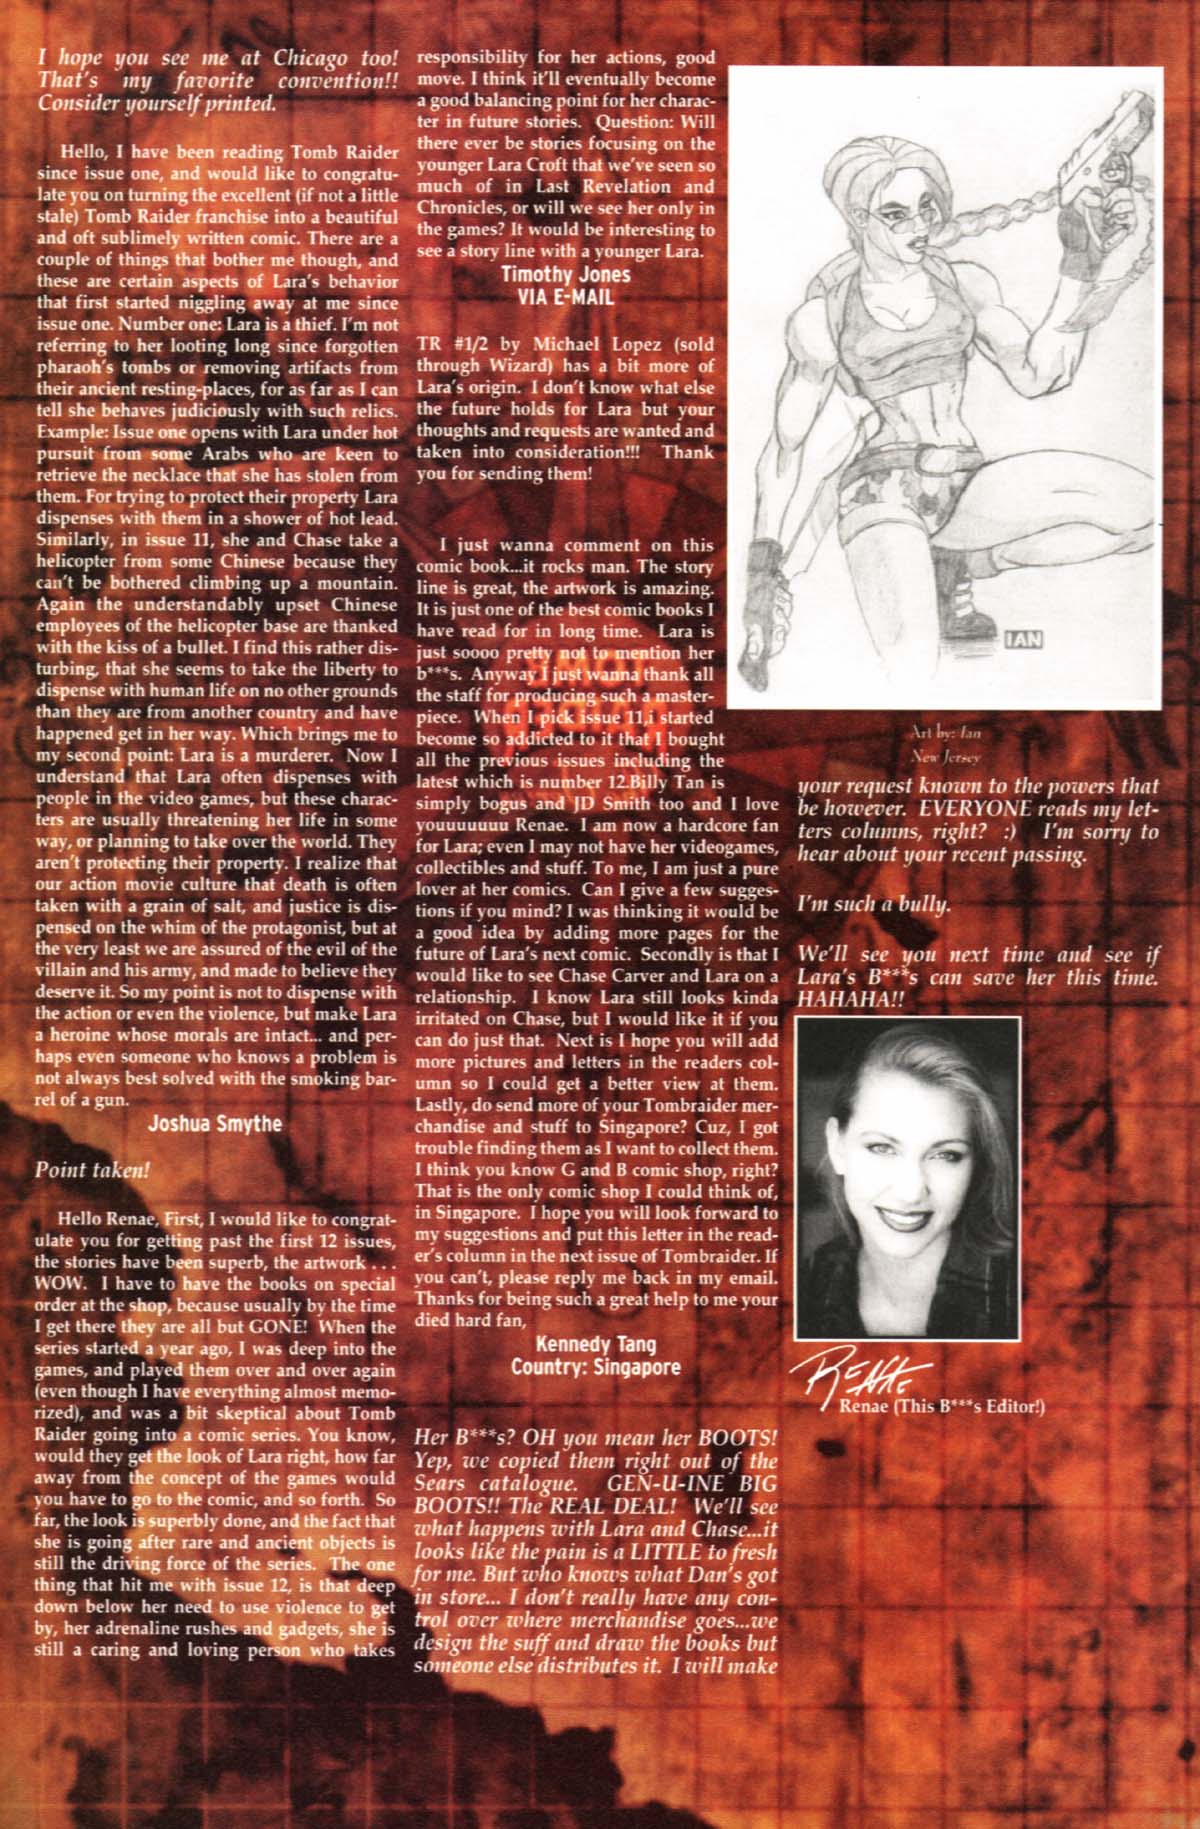 I hope you see me at Chicago too!
That's my favorite convention!!
Consider yourself printed.
Hello, I have been reading Tomb Raider
since issue one, and would like to congratu-
late you on turning the excellent (if not a little
stale) Tomb Raider franchise into a beautiful
and oft sublimely written comic. There are a
couple of things that bother me though, and
these are certain aspects of Lara's behavior
that first started niggling away at me since
issue one. Number one: Lara is a thief. I'm not
referring to her looting long since forgotten
pharaoh's tombs or removing artifacts from
their ancient resting-places, for as far as I can
tell she behaves judiciously with such relics.
Example: Issue one opens with Lara under hot
pursuit from some Arabs who are keen to
retrieve the necklace that she has stolen from
them. For trying to protect their property Lara
dispenses with them in a shower of hot lead.
Similarly, in issue 11, she and Chase take a
helicopter from some Chinese because they
can't be bothered climbing up a mountain.
Again the understandably upset Chinese
employees of the helicopter base are thanked
with the kiss of a bullet. I find this rather dis-
turbing, that she seems to take the liberty to
dispense with human life on no other grounds
than they are from another country and have
happened get in her way. Which brings me to
my second point: Lara is a murderer. Now I
understand that Lara often dispenses with
people in the video games, but these charac-
ters are usually threatening her life in some
way, or planning to take over the world. They
aren't protecting their property. I realize that
our action movie culture that death is often
taken with a grain of salt, and justice is dis-
pensed on the whim of the protagonist, but at
the very least we are assured of the evil of the
villain and his army, and made to believe they
deserve it. So my point is not to dispense with
the action or even the violence, but make Lara
a heroine whose morals are intact... and per-
haps even someone who knows a problem is
not always best solved with the smoking bar-
rel of a gun.
Joshua Smythe
Point taken!
Hello Renae, First, I would like to congrat-
ulate you for getting past the first 12 issues,
the stories have been superb, the artwork . . .
WOW. I have to have the books on special
order at the shop, because usually by the time
I get there they are all but GONE! When the
series started a year ago, I was deep into the
games, and played them over and over again
(even though I have everything almost memo-
rized), and was a bit skeptical about Tomb
Raider going into a comic series. You know,
would they get the look of Lara right, how far
away from the concept of the games would
you have to go to the comic, and so forth. So
far, the look is superbly done, and the fact that
she is going after rare and ancient objects is
still the driving force of the series. The one
thing that hit me with issue 12, is that deep
down below her need to use violence to get
by, her adrenaline rushes and gadgets, she is
still a caring and loving person who takes
responsibility for her actions, good
move. I think it'll eventually become
a good balancing point for her charac-
ter in future stories. Question: Will
there ever be stories focusing on the
younger Lara Croft that we've seen so
much of in Last Revelation and
Chronicles, or will we see her only in
the games? It would be interesting to
see a story line with a younger Lara.
Timothy Jones
VIA E-MAIL
TR #1/2 by Michael Lopez (sold
through Wizard) has a bit more of
Lara's origin. I don't know what else
the future holds for Lara but your
thoughts and requests are wanted and
taken into consideration!!! Thank
you for sending them!
I just wanna comment on this
comic book...it rocks man. The story
line is great, the artwork is amazing.
It is just one of the best comic books I
have read for in long time. Lara is
just soooo pretty not to mention her
b***s. Anyway I just wanna thank all
the staff for producing such a master-
piece. When I pick issue 11,i started
become so addicted to it that I bought
all the previous issues including the
latest which is number 12.Billy Tan is
simply bogus and JD Smith too and I love
youuuuuuu Renae. I am now a hardcore fan
for Lara; even I may not have her videogames,
collectibles and stuff. To me, I am just a pure
lover at her comics. Can I give a few sugges-
tions if you mind? I was thinking it would be
a good idea by adding more pages for the
future of Lara's next comic. Secondly is that I
would like to see Chase Carver and Lara on a
relationship. I know Lara still looks kinda
irritated on Chase, but I would like it if you
can do just that. Next is I hope you will add
more pictures and letters in the readers col-
umn so I could get a better view at them.
Lastly, do send more of your Tombraider mer-
chandise and stuff to Singapore? Cuz, I got
trouble finding them as I want to collect them.
I think you know G and B comic shop, right?
That is the only comic shop I could think of,
in Singapore. I hope you will look forward to
my suggestions and put this letter in the read-
er's column in the next issue of Tombraider. If
you can't, please reply me back in my email.
Thanks for being such a great help to me your
died hard fan,
Kennedy Tang
Country: Singapore
Her B***s? OH you mean her BOOTS!
Yep, we copied them right out of the
Sears catalogue. GEN-U-INE BIG
BOOTS!! The REAL DEAL! We'll see
what happens with Lara and Chase...it
looks like the pain is a LITTLE to fresh
for me. But who knows what Dan's got
in store... I don't really have any con-
trol over where merchandise goes...we
design the suff and draw the books but
someone else distributes it. I will make
IAN
Art by: Ian
New Jersey
your request known to the powers that
be however. EVERYONE reads my let-
ters columns, right? :) I'm sorry to
hear about your recent passing.
I'm such a bully.
We'll see you next time and see if
Lara's B***s can save her this time.
HAHAHA!!
RENAE
Renae (This B***s Editor!)